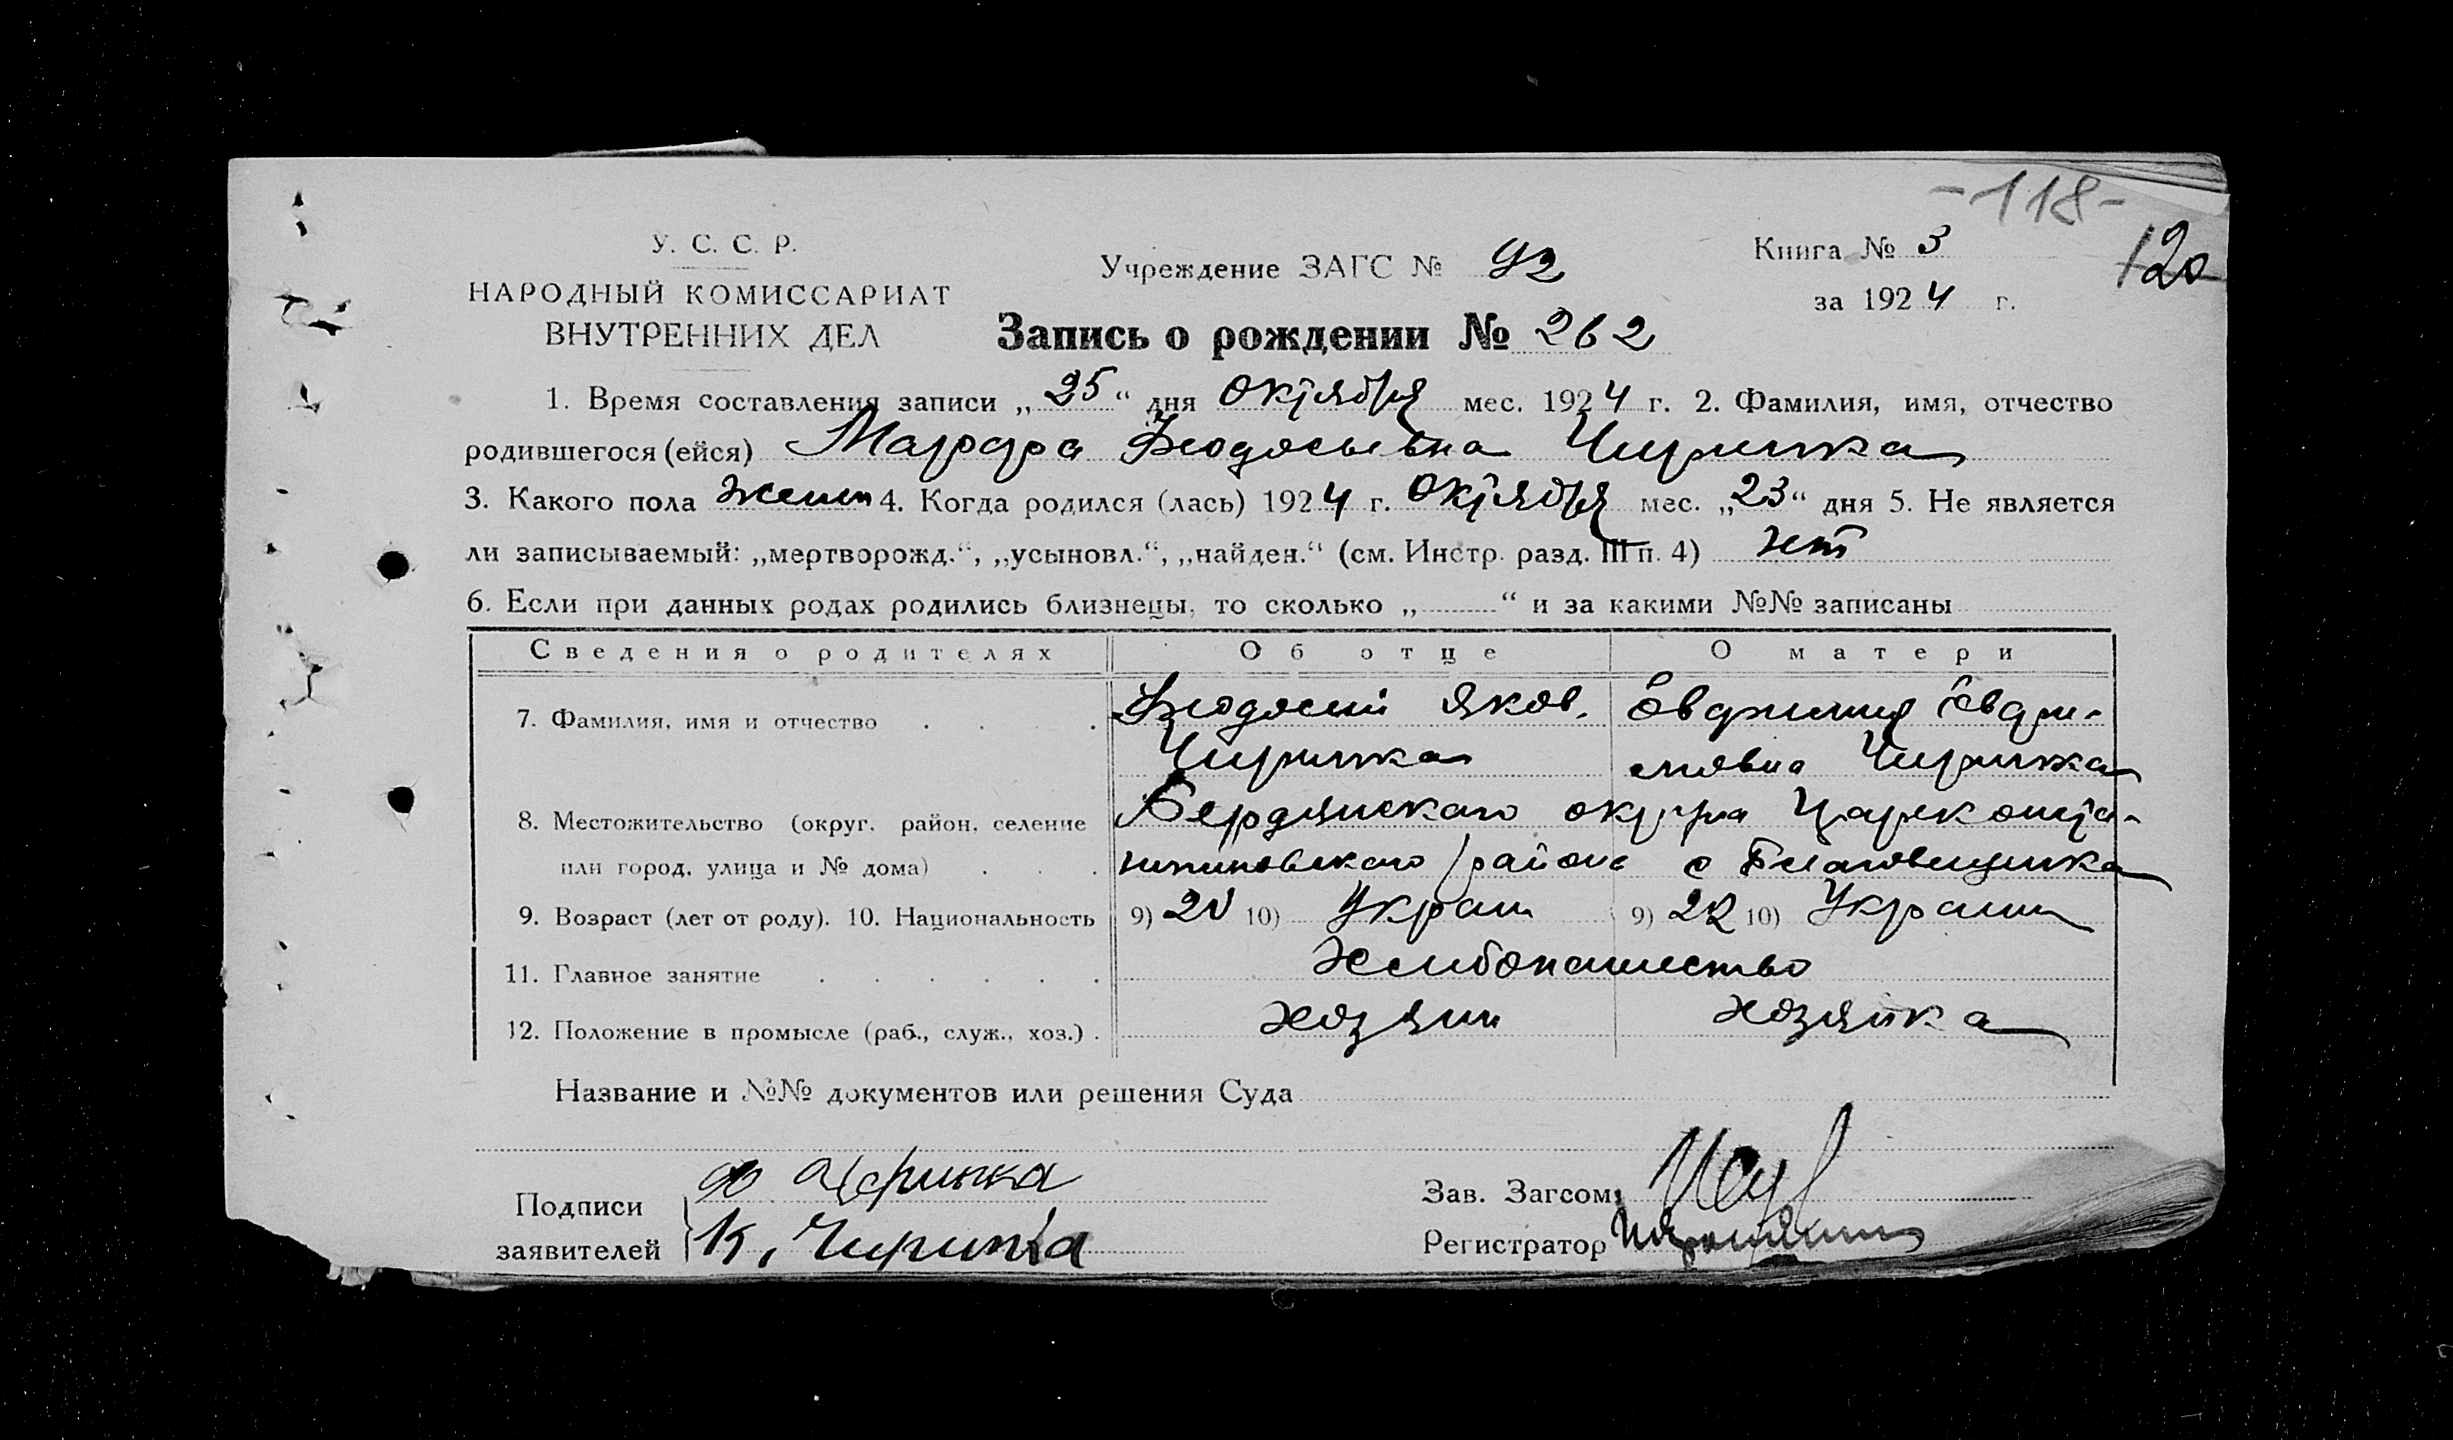 -118-
120
У. С. С. Р.
НАРОДНЫЙ КОМИССАРИАТ
ВНУТРЕННИХ ДЕЛ
Учреждение ЗАГС № 92
Книга № 3
за 1924 г.
Запись о рождении № 262
1. Время составления записи „25“ дня октября мес. 1924 г. 2. Фамилия, имя, отчество
родившегося (ейся) Марфа Феодосьевна Чиринка
3. Какого пола женп 4. Когда родился (лась) 1924 г. октября мес. „23“ дня 5. Не является
ли записываемый: „мертворожд.“, „усыновл.“, „найден.“ (см. Инстр. разд. III п. 4) нет
6. Если при данных родах родились близнецы, то сколько „ “ и за какими №№ записаны
Сведения о родителях Об отце О матери
7. Фамилия, имя и отчество Феодосий Яков. Чиринка Евфимия Евфи-мовна Чиринка
8. Местожительство (округ, район, селение Бердянского округа Цареконста-
или город, улица и № дома) нтиновского района с Благовещенка
9. Возраст (лет от роду). 10. Национальность 9) 20 10) Украин 9) 22 10) Украин
11. Главное занятие Хлибопашество
12. Положение в промысле (раб., служ., хоз.) хозяин хозяйка
Название и №№ документов или решения Суда
Подписи
заявителей
Ф Чиринка
К. Чиринка
Зав. Загсом
Регистратор